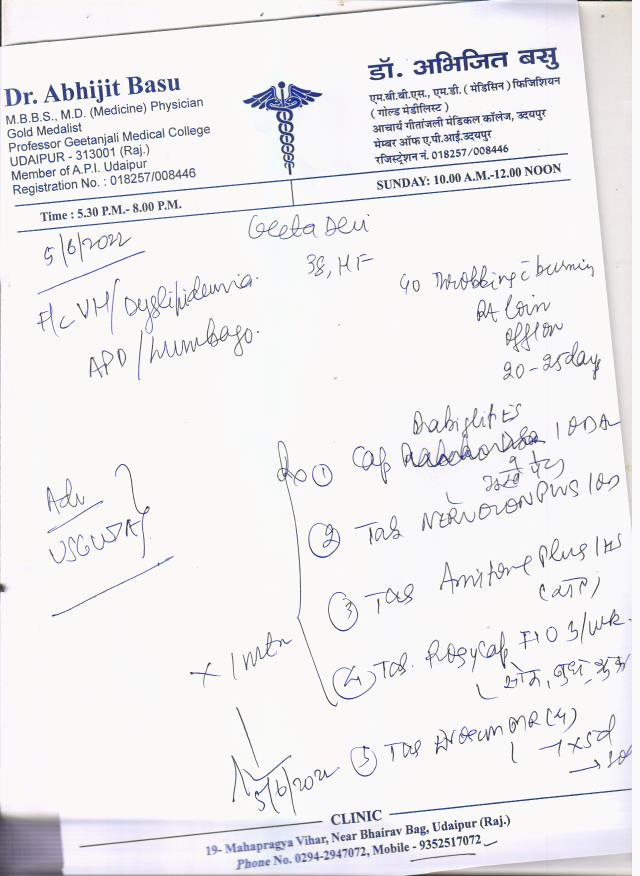 Dr. Abhijit Basu
M.B.B.S., M.D. (Medicine) Physician
Gold Medalist
Professor Geetanjali Medical College
UDAIPUR - 313001 (Raj.)
Member of A.P.I. Udaipur
Registration No. : 018257/008446
डॉ. अभिजित बसु
एम.बी.बी.एस., एम.डी. ( मेडिसिन ) फिजिशियन
( गोल्ड मेडीलिस्ट )
आचार्य गीतांजली मेडिकल कॉलेज, उदयपुर
मेम्बर ऑफ ए.पी.आई. उदयपुर
रजिस्ट्रेशन नं. 018257/008446
Time : 5.30 P.M.- 8.00 P.M.
SUNDAY: 10.00 A.M.-12.00 NOON
5/6/2022
Geeta Devi
38, HF
F/c VH/Dyslipidemia.
APD/Lumbago.
Throbbing c burning
Loin
off/on
20-25 day
Adv
Rx ① Cap
② Tab
③ Tab Plus 1 HS
④ Tab. 3/wk.
सोम, बुध, शुक्र
x 1 mth
⑤ Tab
x 5d
5/6/2022
CLINIC
19- Mahapragya Vihar, Near Bhairav Bag, Udaipur (Raj.)
Phone No. 0294-2947072, Mobile - 9352517072